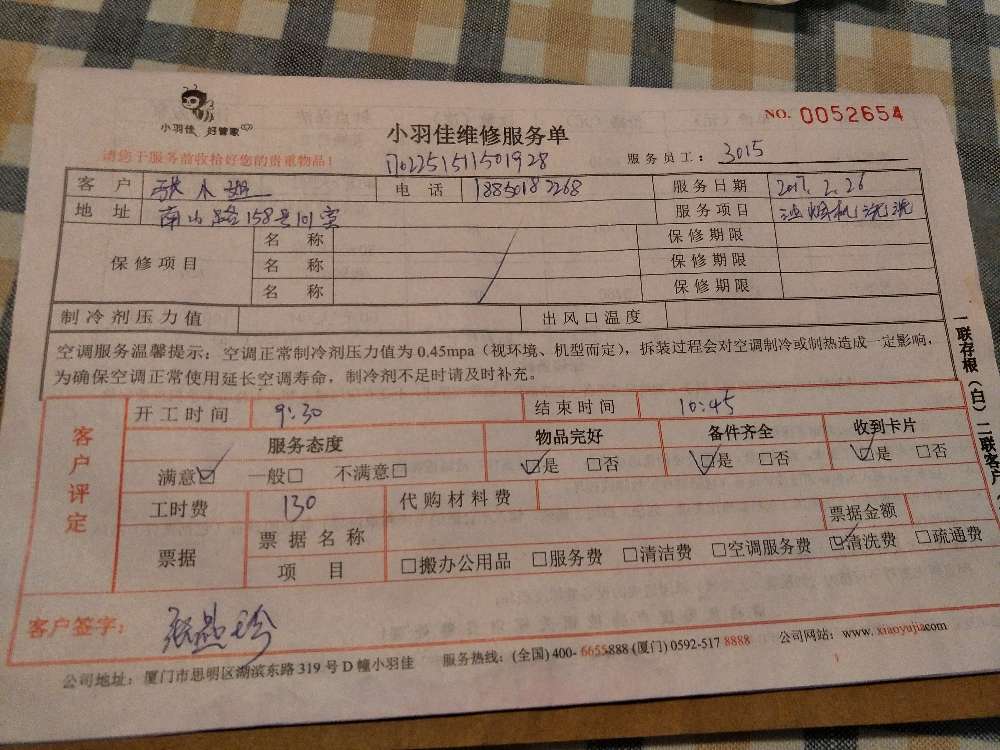 小羽佳 好管家
NO. 0052654
小羽佳维修服务单
请您于服务前收拾好您的贵重物品！
服务员工： 3015
客 户 张小姐 电 话 18850182268 服务日期 2017.2.26
地 址 南山路158号101室 服务项目 油烟机清洗
保修项目 名 称 保修期限
名 称 保修期限
名 称 保修期限
制冷剂压力值 出风口温度
空调服务温馨提示：空调正常制冷剂压力值为 0.45mpa（视环境、机型而定），拆装过程会对空调制冷或制热造成一定影响，
为确保空调正常使用延长空调寿命，制冷剂不足时请及时补充。
客户评定
开工时间 9:30 结束时间 10:45
服务态度 物品完好 备件齐全 收到卡片
满意☑ 一般□ 不满意□ ☑是 □否 ☑是 □否 ☑是 □否
工时费 130 代购材料费
票据 票据名称 票据金额
项 目 □搬办公用品 □服务费 □清洁费 □空调服务费 ☑清洗费 □疏通费
客户签字：
公司地址：厦门市思明区湖滨东路 319 号 D 幢小羽佳 服务热线：(全国) 400- 6655888 (厦门) 0592-517 8888 公司网站：www. xiaoyujia.com
一联存根（白）二联客户